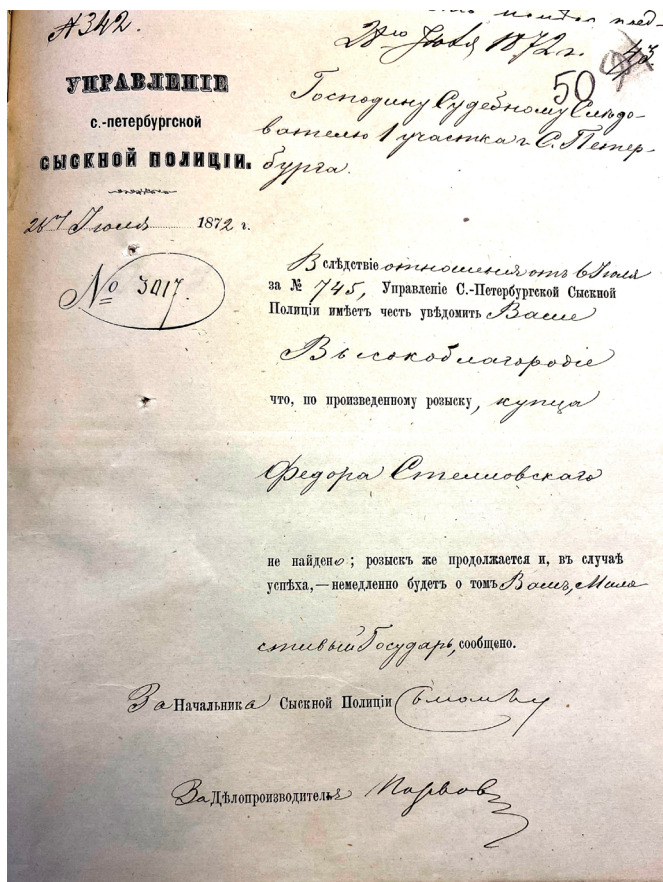 № 342.
28го Іюля 1872 г.
50
УПРАВЛЕНІЕ
С.-ПЕТЕРБУРГСКОЙ
СЫСКНОЙ ПОЛИЦІИ.
Господину Судебному Слѣдо-
вателю 1 участка г. С. Петер-
бурга.
Іюля 1872 г.
№ 3017.
Вслѣдствіе отношенія отъ 6 Іюля
за № 745, Управленіе С.-Петербургской Сыскной
Полиціи имѣетъ честь увѣдомить Ваше
Высокоблагородіе
что, по произведенному розыску, купца
Федора Стелловскаго
не найдено; розыскъ же продолжается и, въ случаѣ
успѣха,—немедленно будетъ о томъ Вамъ, Мило
стивый Государь, сообщено.
За Начальника Сыскной Полиціи
За Дѣлопроизводителя